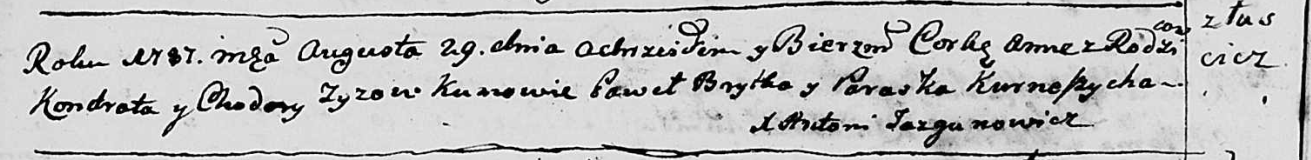 Roku 1787. mca Augusta 29. dnia ochrzciłem y Bierzm Corkę Annę z Rodzi
cow
Kondrata y Chodory Zyzow Kumowie Paweł Brytka y Paraska Kurnopycha
X Antoni Jazgunowicz
z łus
cicz